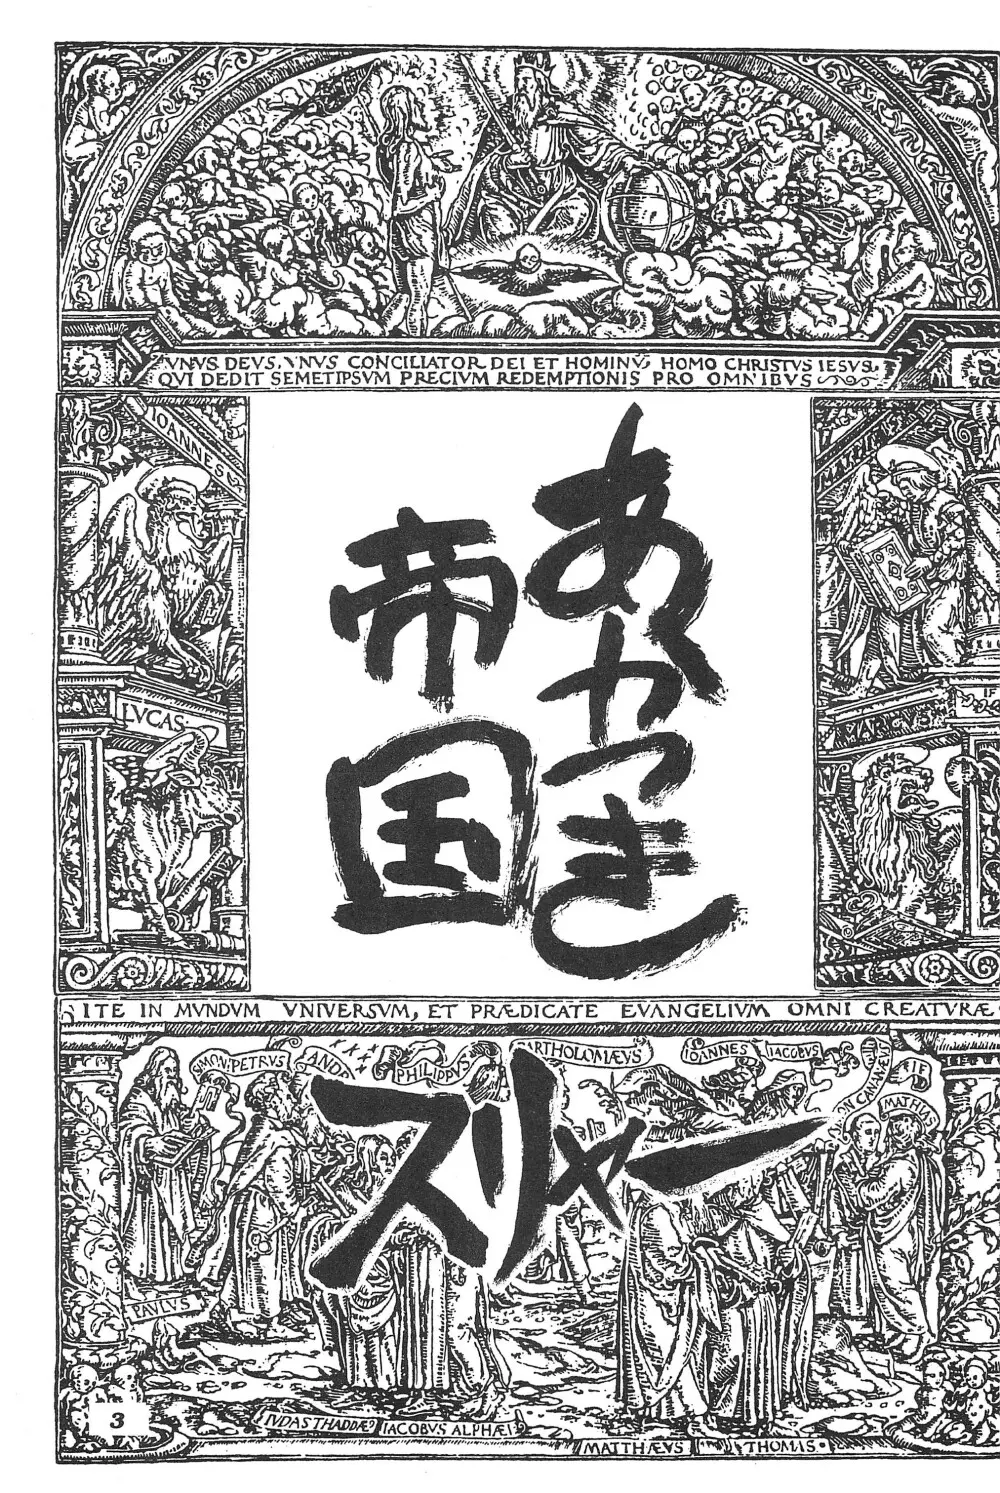 VNVS DEVS, VNVS CONCILIATOR DEI ET HOMINV̄, HOMO CHRISTVS IESVS,
QVI DEDIT SEMETIPSVM PRECIVM REDEMPTIONIS PRO OMNIBVS
IOANNES
あかつき
帝国
LVCAS
MARCVS
ITE IN MVNDVM VNIVERSVM, ET PRÆDICATE EVANGELIVM OMNI CREATVRÆ
SIMON PETRVS
PHILIPPVS
BARTHOLOMÆVS
IOANNES
IACOBVS
MATHIAS
スリャー
PAVLVS
IVDAS THADDÆ9
IACOBVS ALPHÆI
MATTHÆVS
THOMAS
3